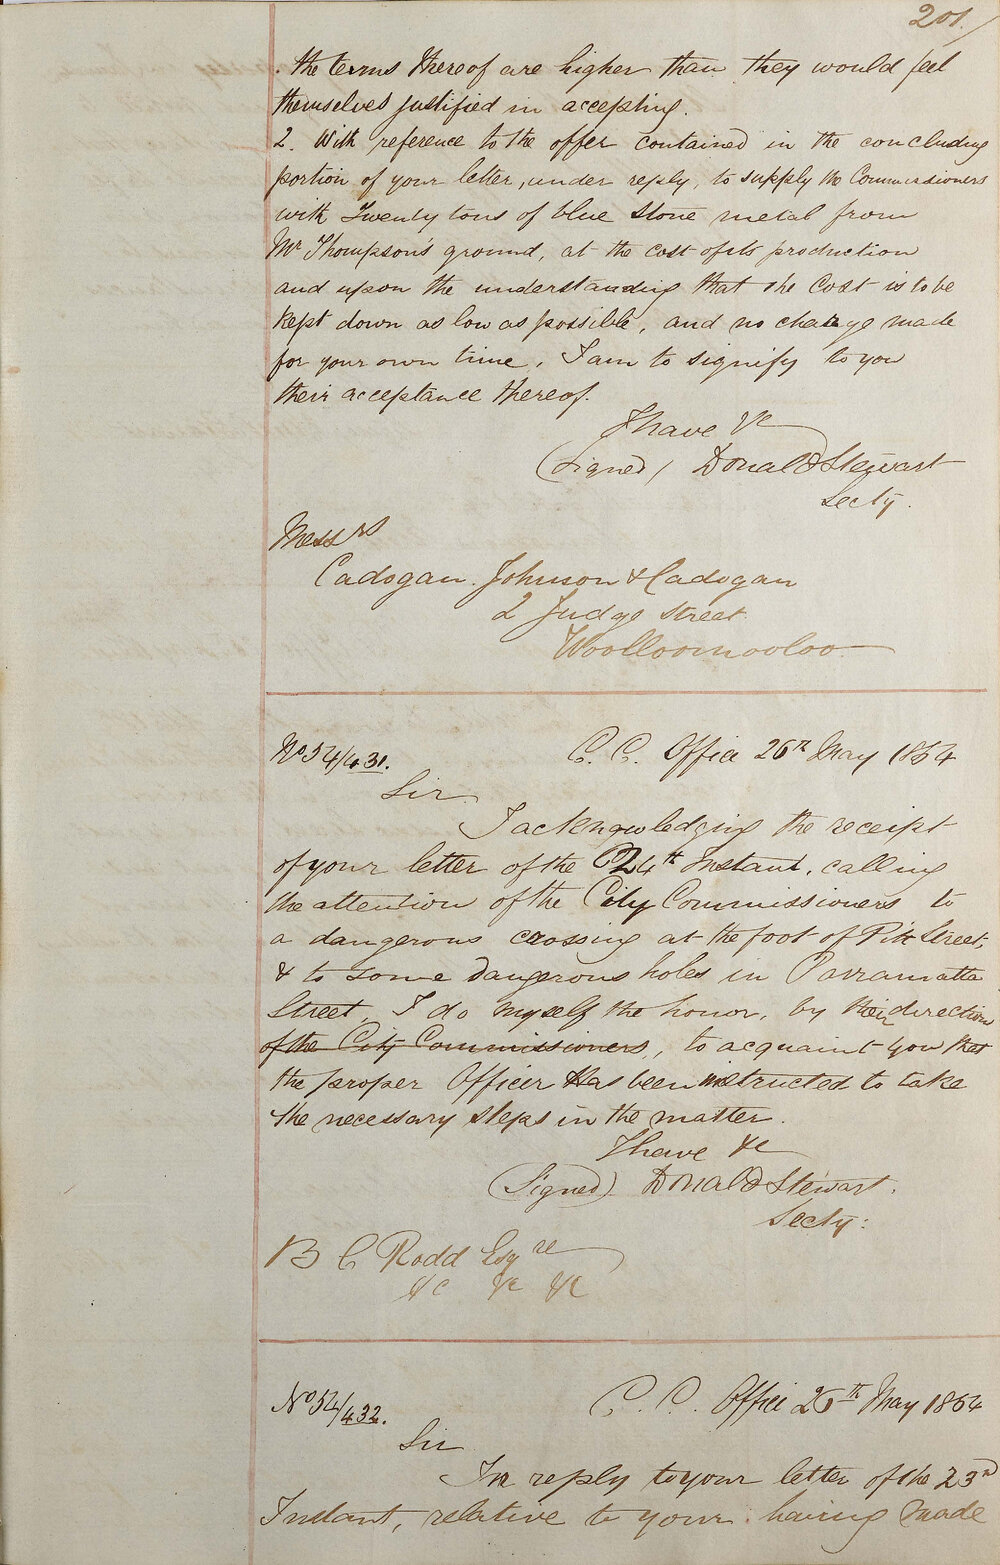 201
the terms thereof are higher than they would feel
themselves justified in accepting.
2. With reference to the offer contained in the concluding
portion of your letter, under reply, to supply the Commissioners
with Twenty tons of blue stone metal from
Mr Thompson's ground, at the cost of its production
and upon the understanding that the Cost is to be
kept down as low as possible, and no charge made
for your own time, I am to signify to you
their acceptance thereof.
I have &c
(Signed) Donald Stewart
Secty.
Messrs
Cadogan Johnson & Cadogan
2 Judge Street
Woolloomooloo
No 54/431.
C. C. Office 26th May 1854
Sir
I acknowledging the receipt
of your letter of the 24th Instant, calling
the attention of the City Commissioners to
a dangerous crossing at the foot of Pitt Street,
& to some dangerous holes in Parramatta
Street, I do myself the honor, by their direction
of the City Commissioners, to acquaint you that
the proper Officer has been instructed to take
the necessary steps in the matter.
I have &c
(Signed) Donald Stewart.
Secty:
B C Rodd Esqre
&c &c &c
No 54/432.
C. C. Office 26th May 1854
Sir
In reply to your letter of the 23rd
Instant, relative to your having made